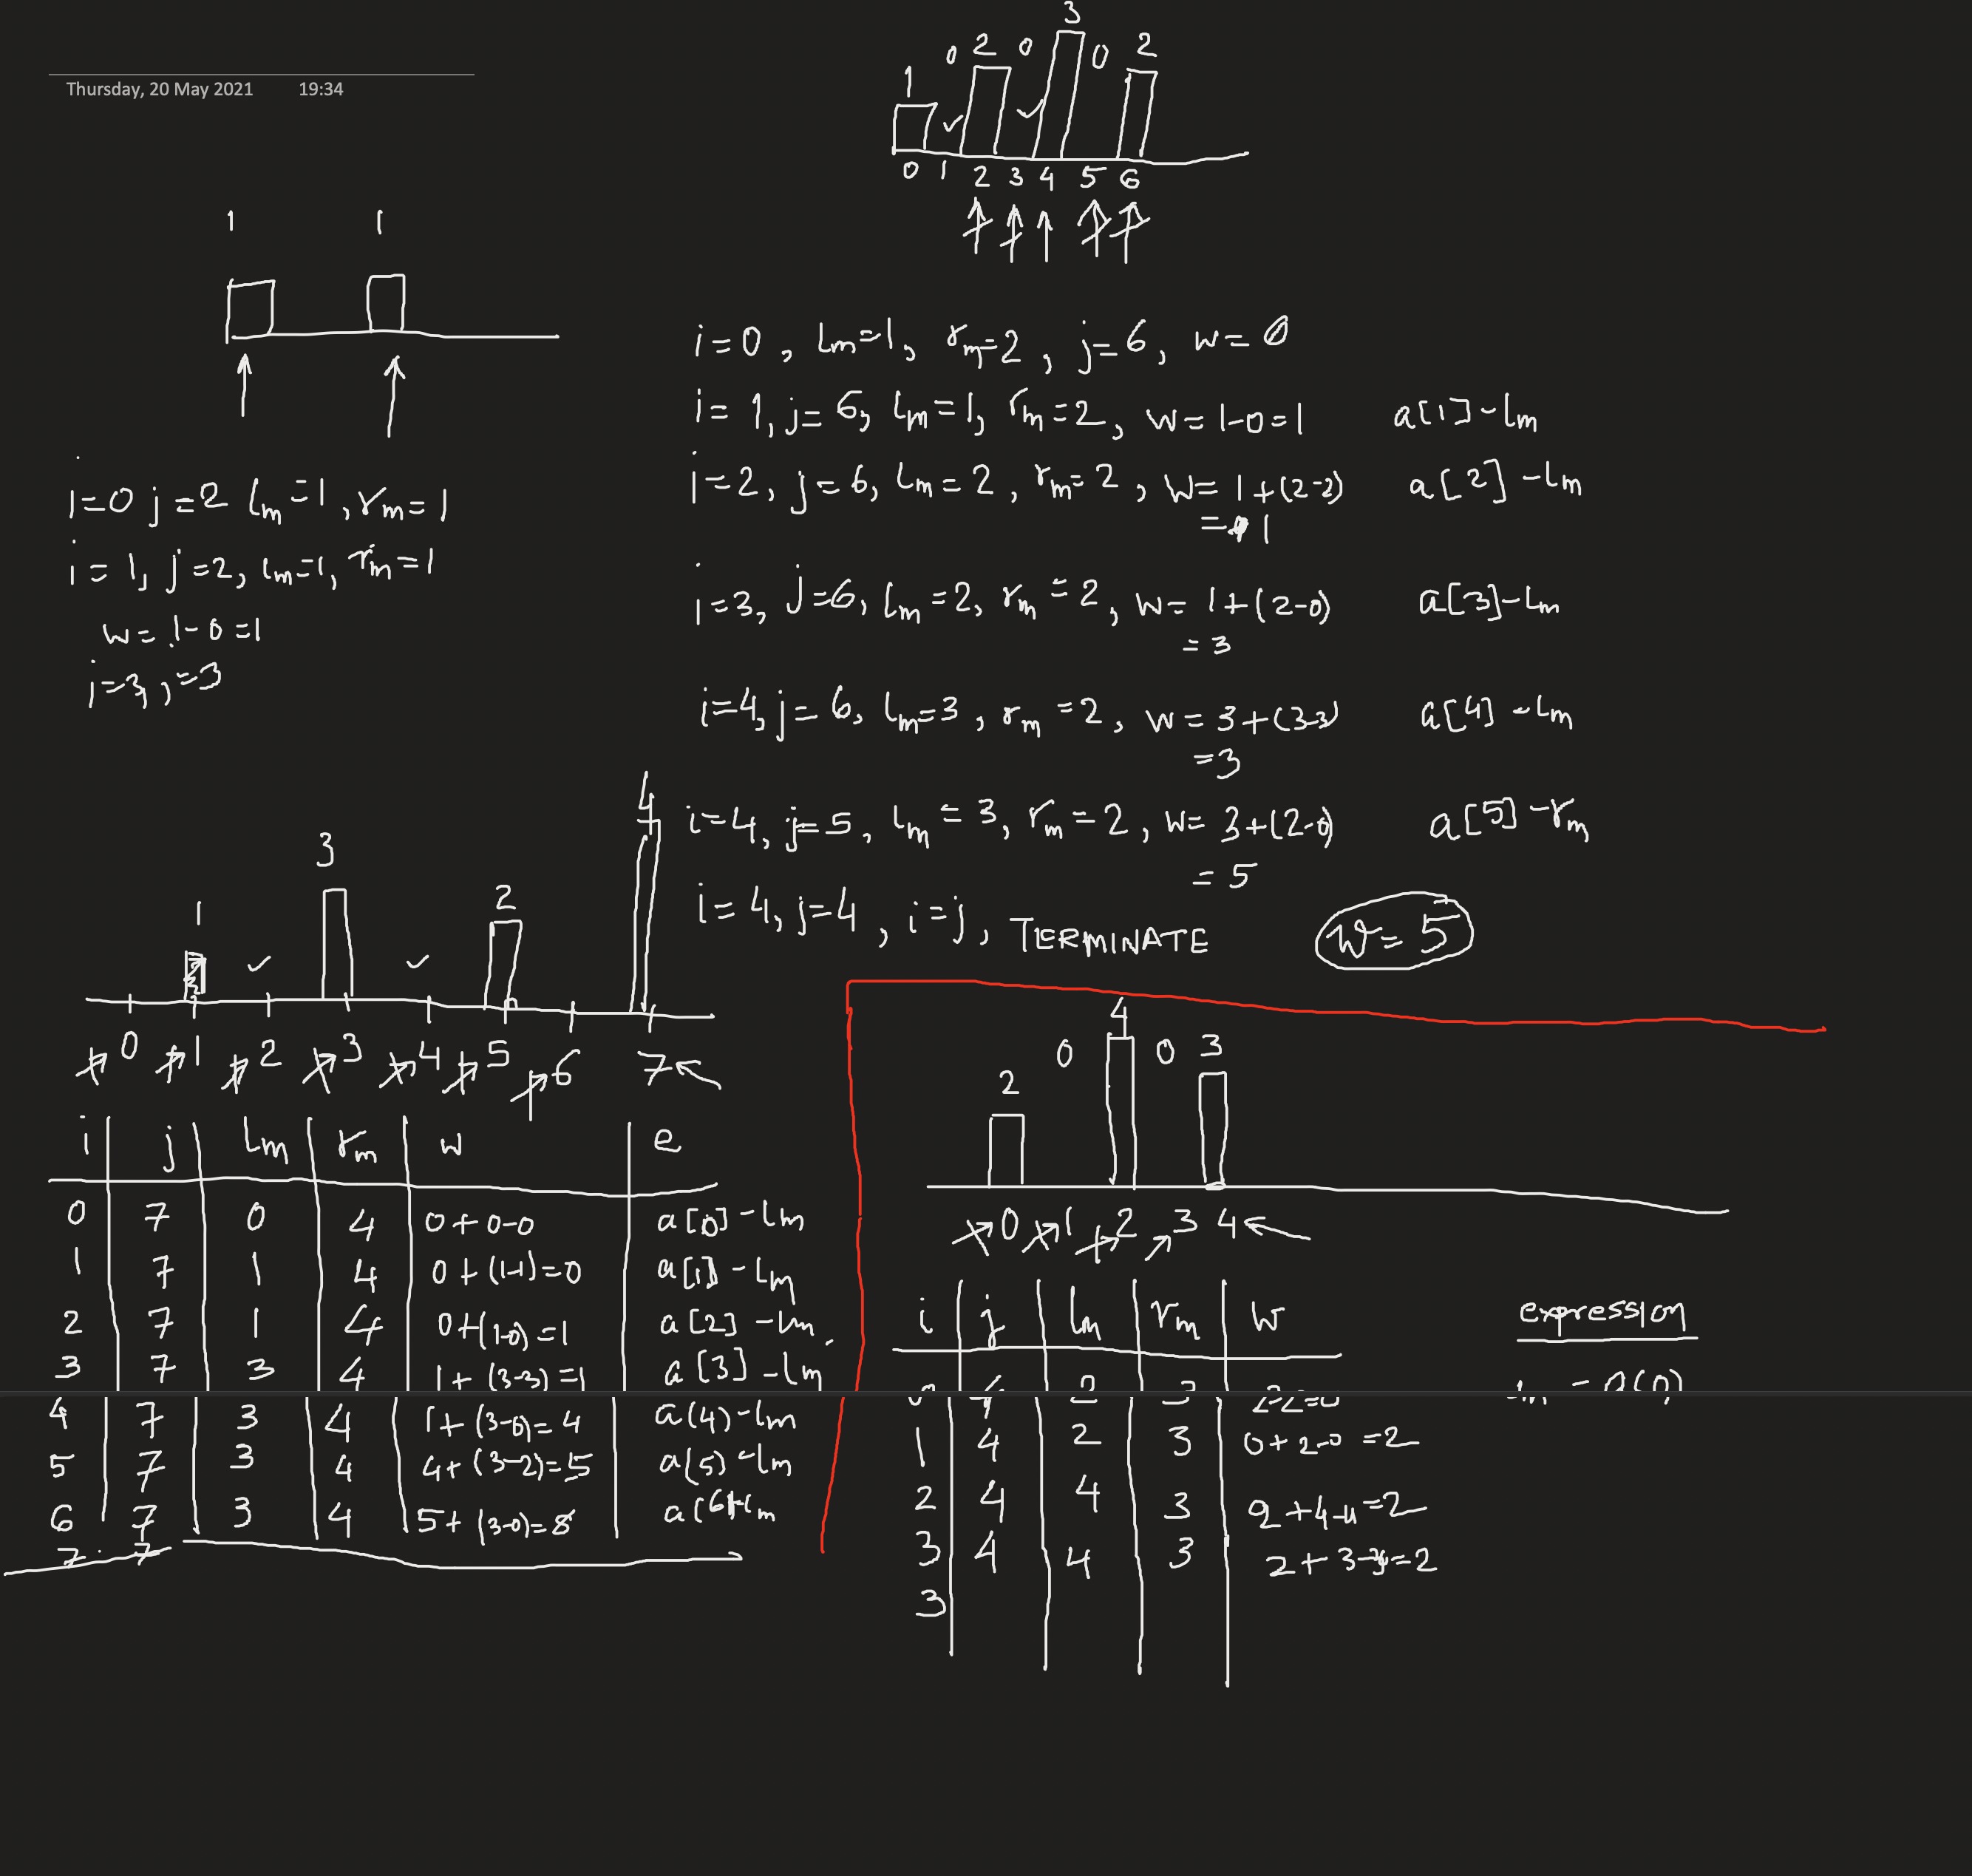 Thursday, 20 May 2021 19:34
3
0 2 0 0 2
1
0 1 2 3 4 5 6
1 1
i=0 j=2 lm=1, rm=1
i=1, j=2, lm=1, rm=1
w=1-0=1
i=0, lm=1, rm=2, j=6, w=0
i=1, j=6, lm=1, rm=2, w=1-0=1 a[1]-lm
i=2, j=6, lm=2, rm=2, w=1+(2-2) a[2]-lm
=1
i=3, j=6, lm=2, rm=2, w=1+(2-0) a[3]-lm
=3
i=4, j=6, lm=3, rm=2, w=3+(3-3) a[4]-lm
=3
i=4, j=5, lm=3, rm=2, w=3+(2-0) a[5]-rm
=5
i=4, j=4, i=j, TERMINATE W=5
4
3
1 2
0 1 2 3 4 5 6 7
i j lm rm w e
0 7 0 4 0+0-0 a[0]-lm
1 7 1 4 0+(1-1)=0 a[1]-lm
2 7 1 4 0+(1-0)=1 a[2]-lm
3 7 3 4 1+(3-3)=1 a[3]-lm
4 7 3 4 1+(3-0)=4 a(4)-lm
5 7 3 4 4+(3-2)=5 a(5)-lm
6 7 3 4 5+(3-0)=8
7 7
4
0 0 3
2
0 1 2 3 4
i j lm rm w expression
1 4 2 3 0+2-0=2
2 4 4 3 2+4-4=2
3 4 4 3
3